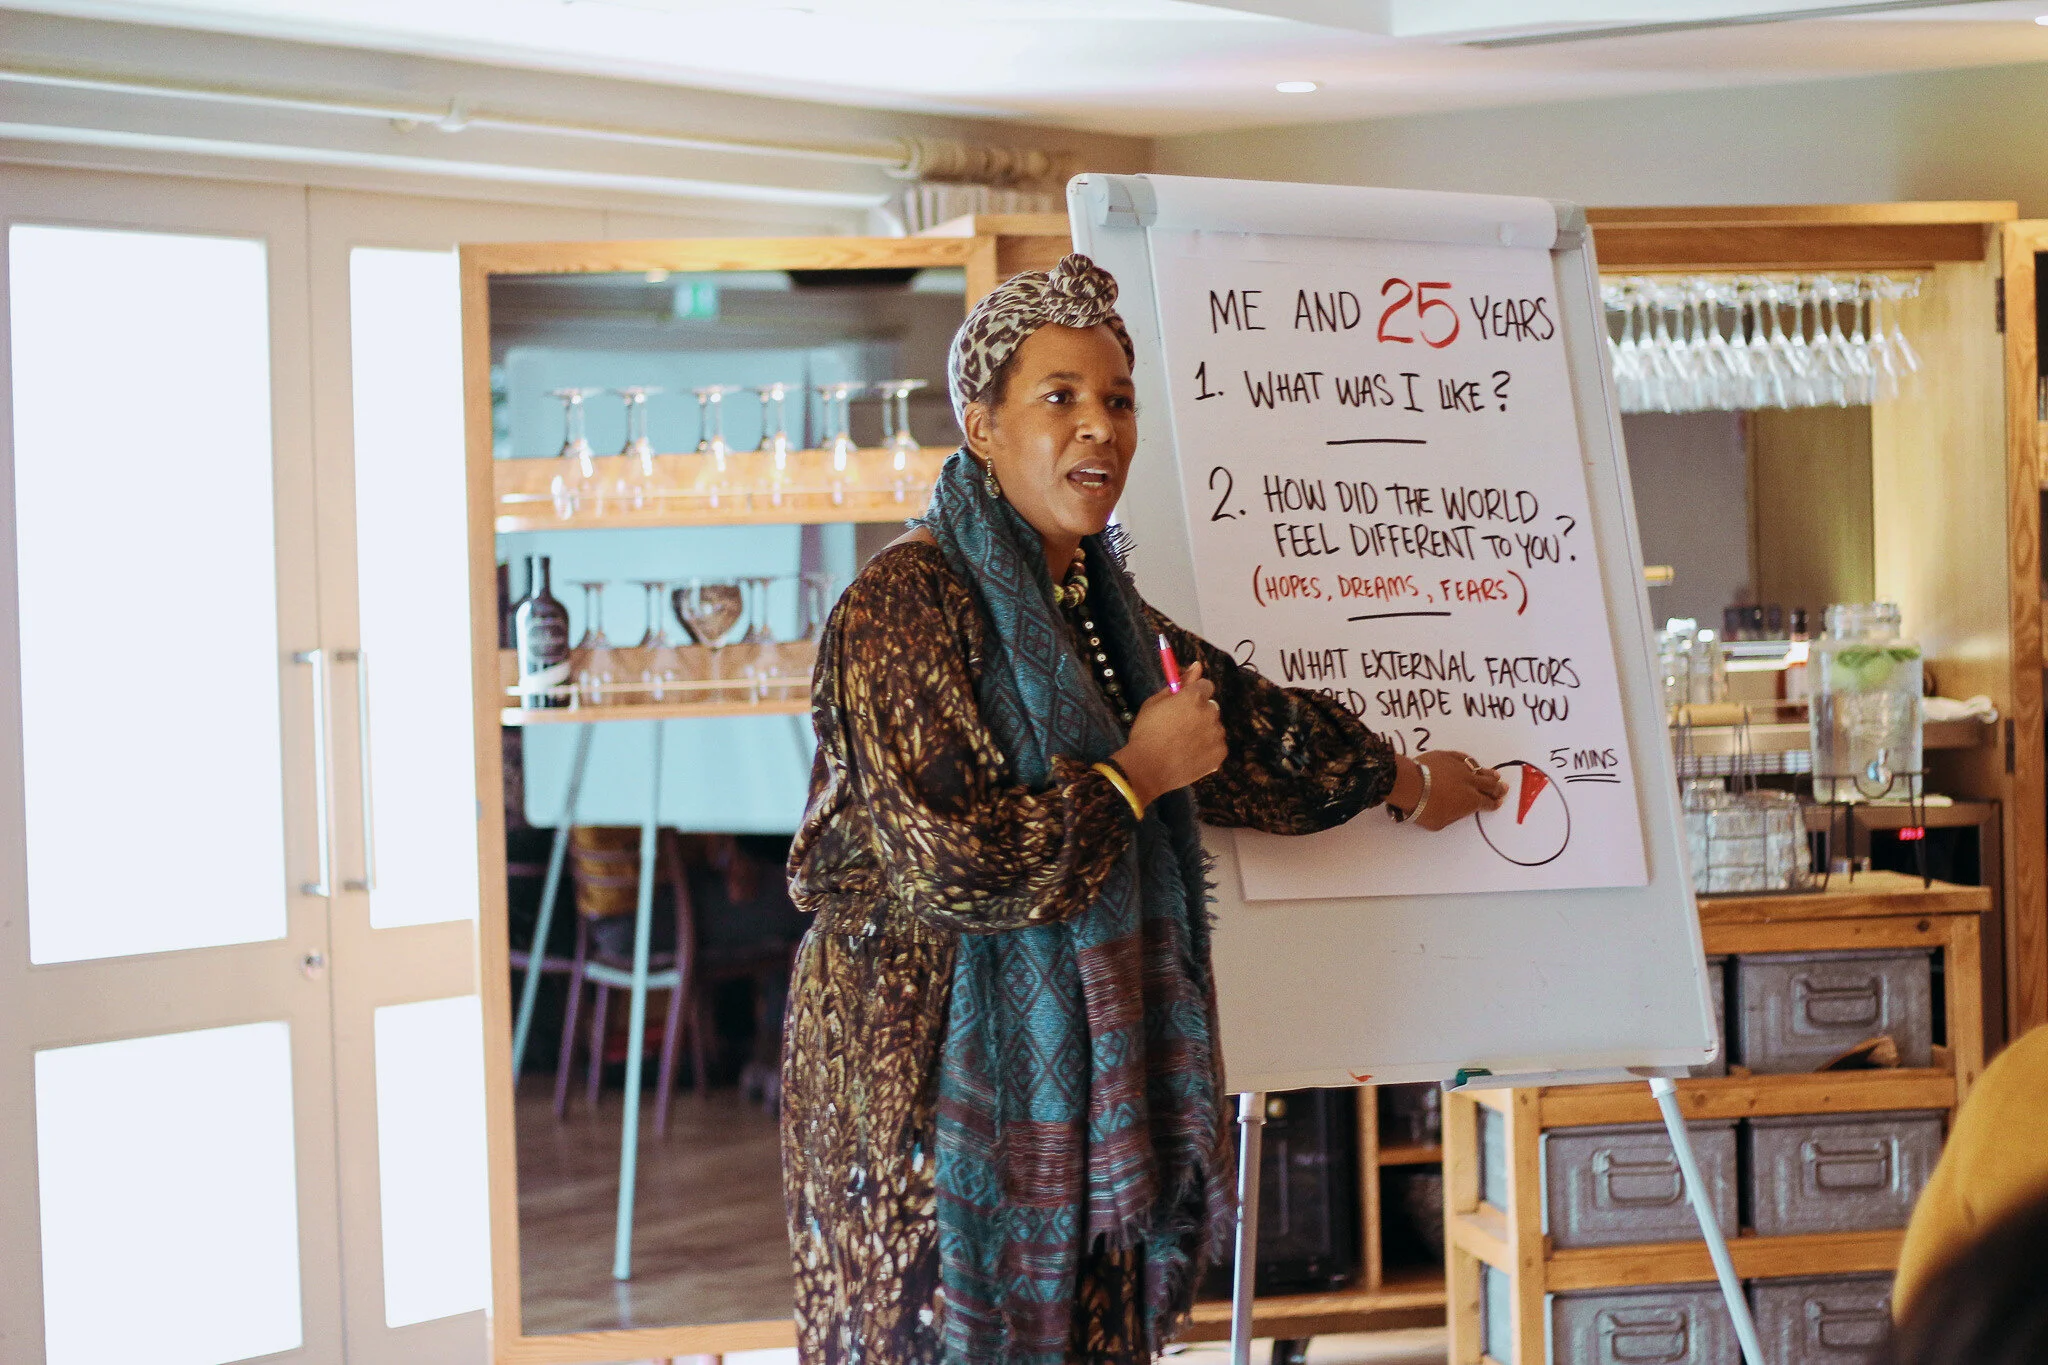 ME AND 25 YEARS
1. WHAT WAS I LIKE?
2. HOW DID THE WORLD
FEEL DIFFERENT TO YOU?
(HOPES, DREAMS, FEARS)
3 WHAT EXTERNAL FACTORS
SHAPE WHO YOU
?
5 MINS